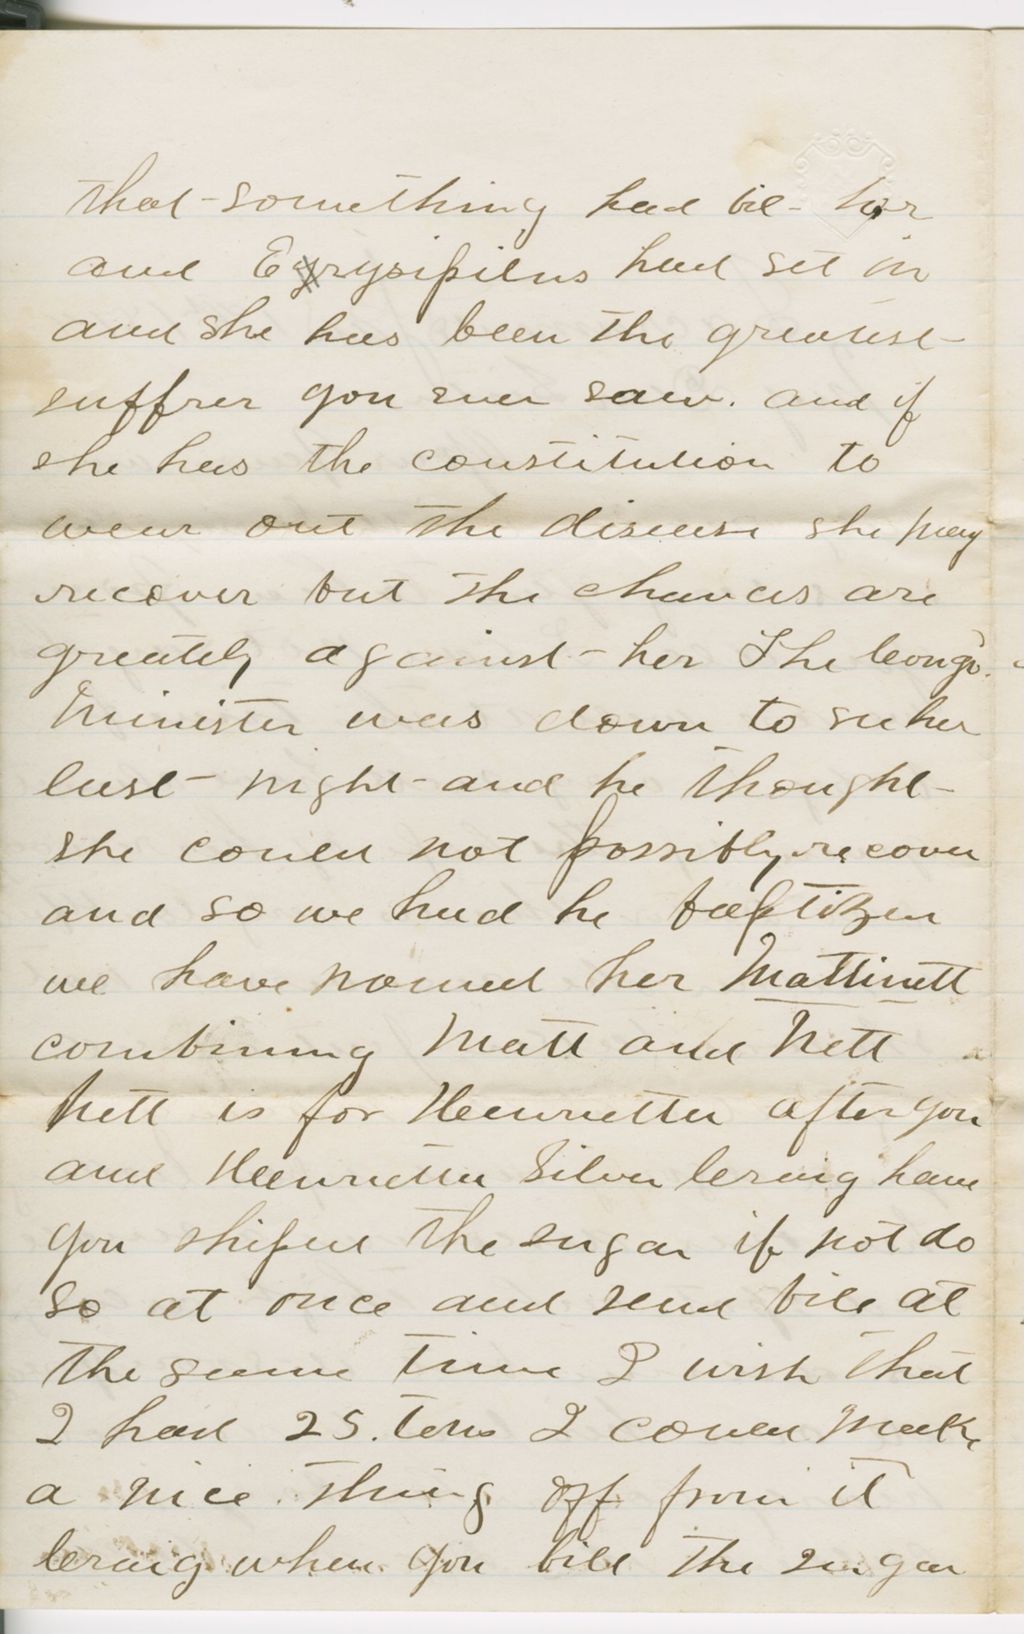 that something had bit her
and Erysipilus had set in
and she has been the greatest
suffrer you ever saw. and if
she has the constitution to
wear out the disease she may
recover but the chances are
greately against her The Cong'o.
Minister was down to see her
last night and he thought
she could not possibly recover
and so we had he baptized
we have named her Mattinett
combining Matt and Nett
Nett is for Heenrietta after you
and Heenrietta Silver have
you shiped the sugar if not do
so at once and send bill at
the same time I wish that
I had 25. tons I could make
a nice thing off from it
when you bill the sugar